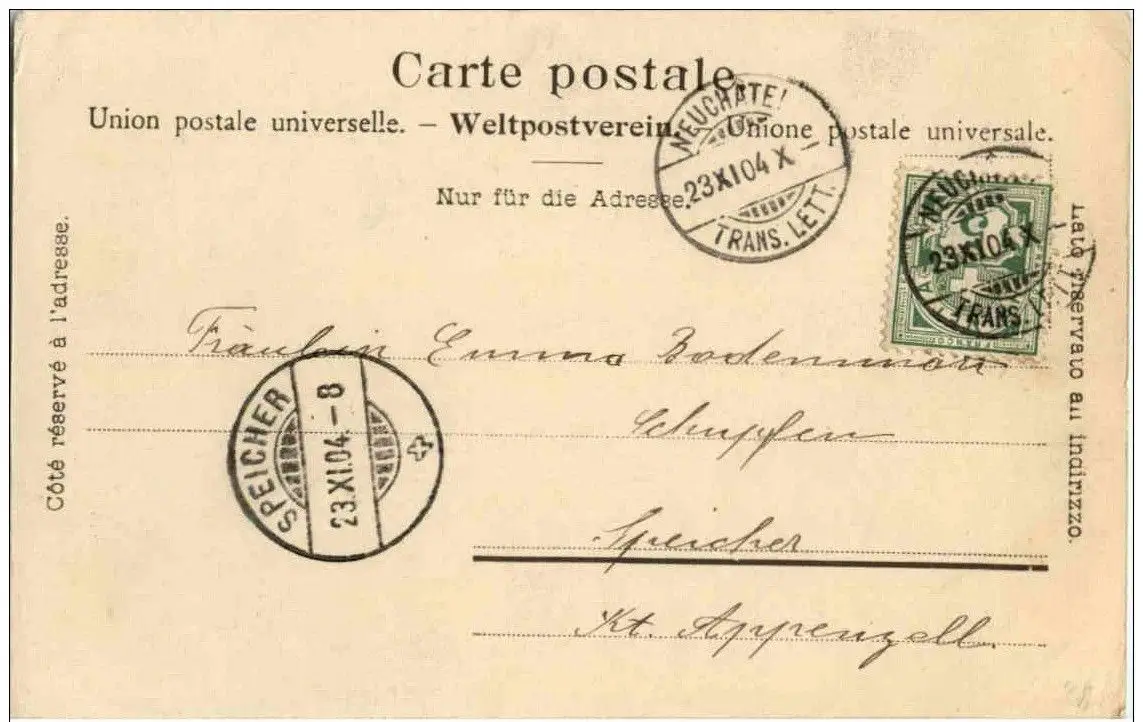 Carte postale.
Union postale universelle. – Weltpostverein. – Unione postale universale.
Nur für die Adresse.
Côté réservé à l'adresse.
Lato riservato ai indirizzo.
NEUCHATEL
23 XI 04 X –
TRANS. LETT.
NEUCHATEL
23 XI 04 X –
TRANS. LETT.
5
FRANCO
Fräulein Emma Bodenmann
Schupfen
Speicher
Kt. Appenzell.
SPEICHER
23.XI.04.–8